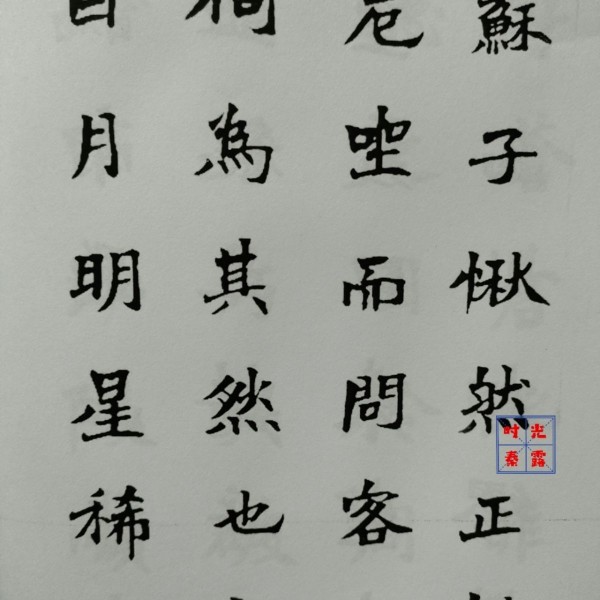 蘇子愀然正
危坐而問客
何為其然也
曰月明星稀
时光
秦露